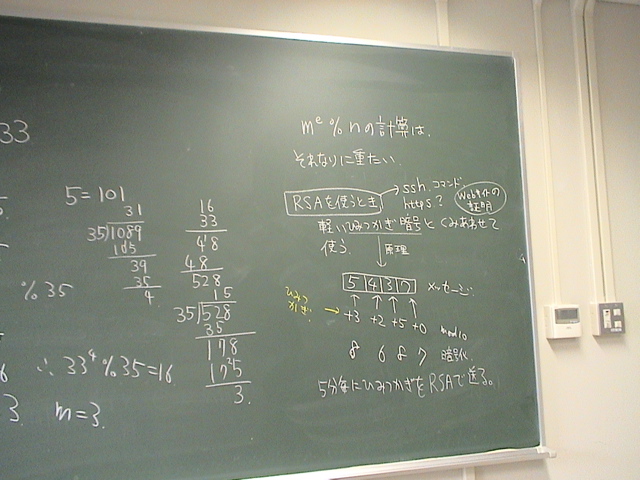 33
5=101
31
35)1089
105
39
35
4
%35
∴33⁴%35=16
3. m=3.
16
33
48
48
528
15
35)528
35
178
175
3.
mᵉ%nの計算は、
それなりに重たい.
RSAを使うとき
ssh.コマンド
https?
Webサイトの
証明
軽いひみつかぎ暗号とくみあわせて
使う.
原理
5 4 3 7 メッセージ.
ひみつ
かぎ.
+3 +2 +5 +0 mod10
8 6 8 7 暗号化.
5分毎にひみつかぎをRSAで送る。